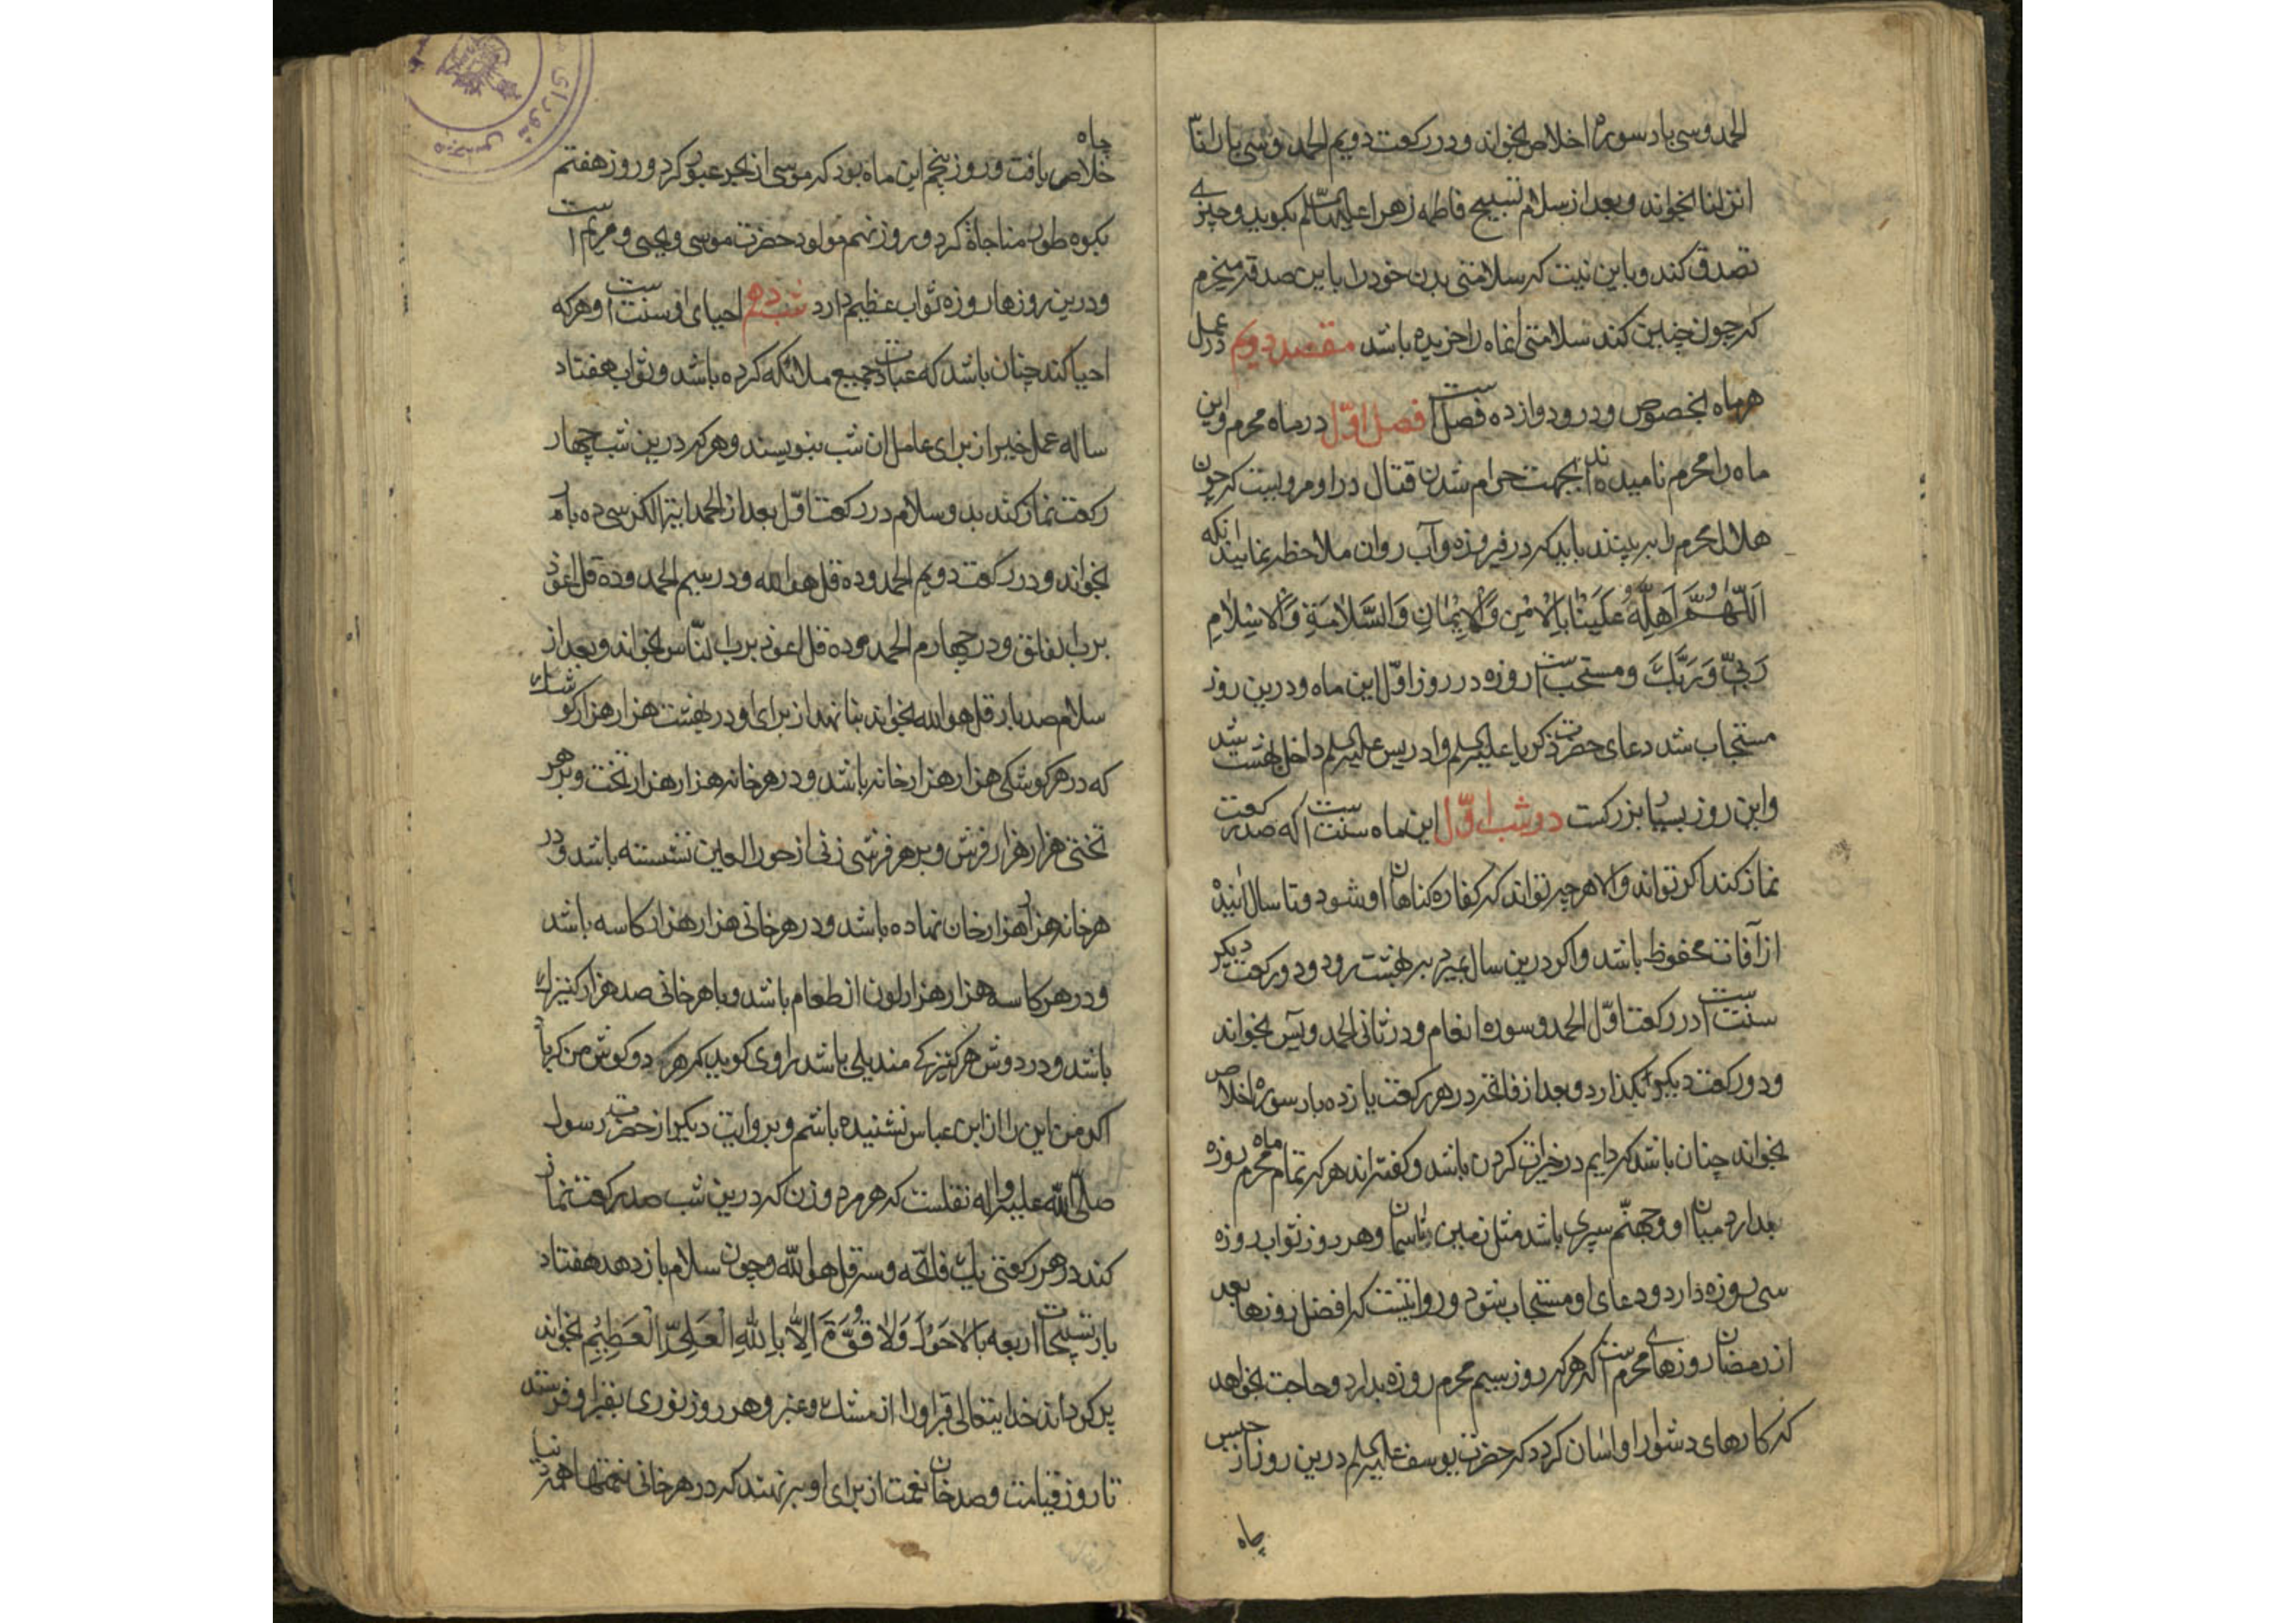 الحمد و سی بار سوره اخلاص بخواند و در رکعت دویم الحمد و سی بار انّا
انزلنا بخواند و بعد از سلام تسبیح فاطمه زهرا علیها السلم بکوید و چیزی
تصدق کند و باین نیت که سلامتی بدن خود را باین صدقه میخرم
که چون چنین کند سلامتی انماه را خریده باشد مقصد دویم در عمل
هر ماه بخصوص و درو دوازده فصل است فصل اوّل در ماه محرم و این
ماه را محرم نامیده اند بجهت حرام شدن قتال در او مرویست که چون
هلال محرم را ببینند باید که در فیروزه و آب روان ملاحظه نمایند انکه
اَللّهُمَّ اَهِلَّهُ عَلَیْنا بِالْاَمْنِ وَالْاِیْمانِ وَالسَّلامَةِ وَالْاِسْلامِ
رَبّی وَرَبُّکَ و مستحب است روزه در روز اوّل این ماه و درین روز
مستجاب شد دعای حضرت ذکریا علیه السلم و ادریس علیه السلم داخل بهشت شد
و این روز بسیار بزرکست در شب اوّل این ماه سنت است که صد رکعت
نماز کند اکر تواند و الا هر چه تواند که کفاره کناهان او شود و تا سال اینده
از آفات محفوظ باشد و اکر درین سال بمیرد ببهشت رود و دو رکعت دیکر
سنت است در رکعت اوّل الحمد و سوره انعام و در ثانی الحمد و یس بخواند
و دو رکعت دیکر بکذارد و بعد از فاتحه در هر رکعت یازده بار سوره اخلاص
بخواند چنان باشد که دایم در خیرات کردن باشد و کفته اند هر که تمام ماه محرم روزه
بدارد میان او و جهنّم سپری باشد مثل زمین تا اسمان و هر روز ثواب روزه
سی روزه دارد و دعای او مستجاب شود و روایتست که افضل روزها بعد
از رمضان روزهای محرم است که هر که روز سیم محرم روزه بدارد و حاجت بخواهد
که کارهای دشوار او اسان کردد که حضرت یوسف علیه السلم درین روز از حبس
چاه
چاه
خلاص یافت و روز پنجم این ماه بود که موسی از بحر عبور کرد و روز هفتم
بکوه طور مناجاة کرد و روز نهم مولود حضرت موسی و یحیی و مریم است
و درین روزها روزه ثواب عظیم دارد شب دهم احیای او سنت است و هر که
احیا کند چنان باشد که عبادت جمیع ملائکه کرده باشد و ثواب هفتاد
ساله عمل خیر از برای عامل ان شب بنویسند و هر که درین شب چهار
رکعت نماز کند بدو سلام در رکعت اوّل بعد از الحمد ایة الکرسی ده بار
بخواند و در رکعت دویم الحمد و ده قل هو الله و در سیم الحمد و ده قل اعوذ
برب الفلق و در چهارم الحمد و ده قل اعوذ برب النّاس بخواند و بعد از
سلام صد بار قل هو الله بخواند بنا نهد از برای او در بهشت هزار هزار کوشک
که در هر کوشکی هزار هزار خانه باشد و در هر خانه هزار هزار تخت و بر هر
تختی هزار هزار فرش و بر هر فرشی زنی از حور العین نشسته باشد و در
هر خانه هزار هزار خان نهاده باشد و در هر خانی هزار هزار کاسه باشد
و در هر کاسه هزار هزار لون از طعام باشد و با هر خانی صد هزار کنیزک
باشد و در دوش هر کنیزکی مندیلی باشد راوی کوید که هر دو کوش من کر باد
اکر من این را از ابن عباس نشنیده باشم و بروایت دیکر از حضرت رسول
صلّی الله علیه و اله نقلست که هر مرد و زن که درین شب صد رکعت نماز
کند در هر رکعتی یک فاتحه و سه قل هو الله و چون سلام باز دهد هفتاد
بار تسبیحات اربعه با لاحَوْلَ وَلا قُوَّةَ اِلّا بِاللهِ الْعَلِیِّ الْعَظیْمِ بخواند
پر کرداند خدایتعالی قبر او را از مشک و عنبر و هر روز نوری بقبر او فرستند
تا روز قیامت و صد خان نعمت از برای او بر نهند که در هر خانی نعمتها همه دنیا